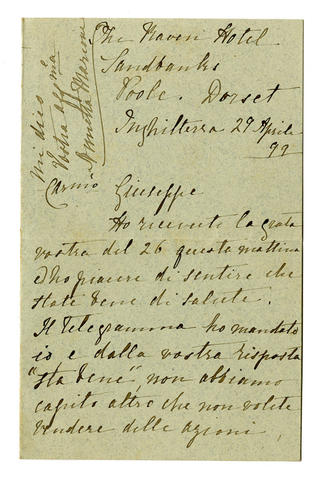 The Haven Hotel
Sandbanks
Poole. Dorset
Inghilterra 29 Aprile
99
Carmo Giuseppe
Ho ricevuto la grata
vostra del 26 questa mattina
e ho piacere di sentire che
state bene di salute.
Il Telegramma ho mandato
io e dalla vostra risposta
"sta bene", non abbiamo
capito altro che non volete
vendere delle azioni,
mi dico
Vostra aff ma
Annetta Marconi